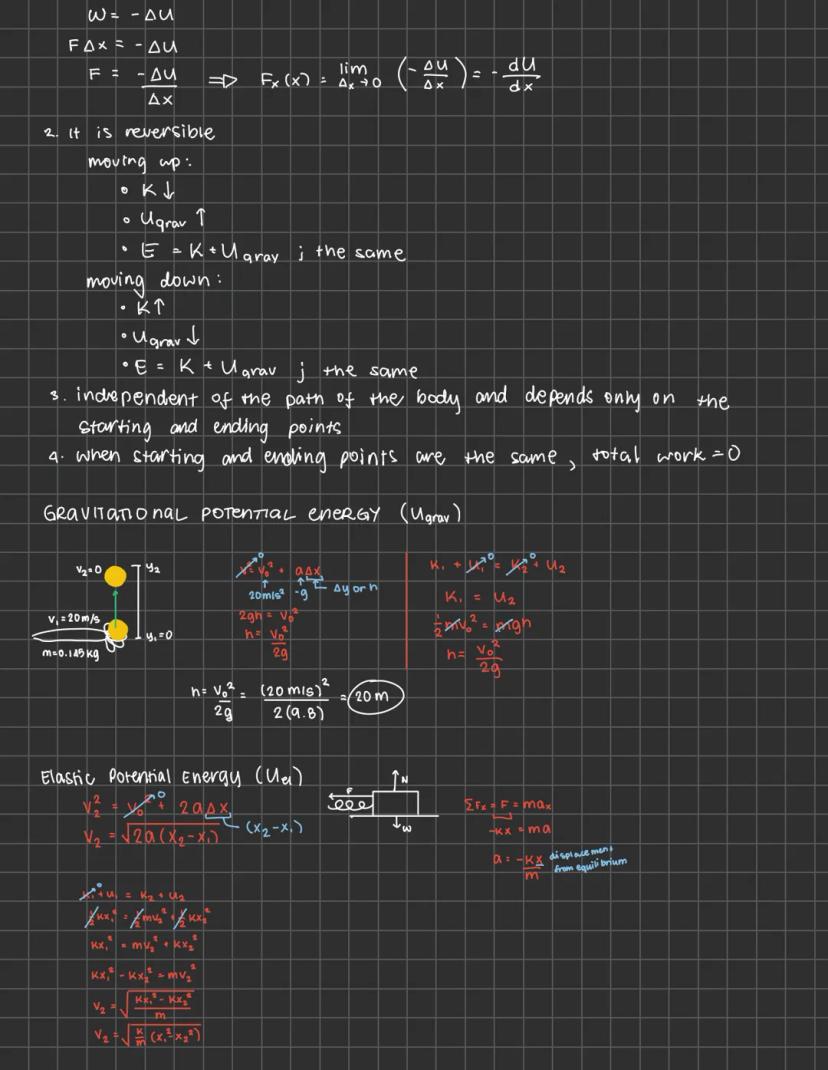 W = -ΔU
FΔx = -ΔU
F = -ΔU/Δx ⇒ Fx(x) = lim Δx→0 (-ΔU/Δx) = -dU/dx
2. It is reversible
moving up:
• K↓
• Ugrav ↑
• E = K + Ugrav ; the same
moving down:
• K↑
• Ugrav ↓
• E = K + Ugrav ; the same
3. independent of the path of the body and depends only on the
starting and ending points
4. when starting and ending points are the same, total work = 0
GRAVITATIONAL POTENTIAL ENERGY (Ugrav)
v₂=0
y₂
v₁=20m/s
y₁=0
m=0.145kg
v² = v₀² + aΔx
0
20m/s² -g Δy or h
2gh = v₀²
h = v₀²/2g
K₁ + U₁ = K₂ + U₂
0 0
K₁ = U₂
½mv₀² = mgh
h = v₀²/2g
h = v₀²/2g = (20 m/s)²/2(9.8) = 20m
Elastic Potential Energy (Uel)
v₂² = v₀² + 2aΔx
0
(x₂-x₁)
v₂ = √2a(x₂-x₁)
F
N
W
ΣFx = F = max
-kx = ma
a = -kx/m displacement
from equilibrium
K₁ + U₁ = K₂ + U₂
0
½kx₁² = ½mv₂² + ½kx₂²
kx₁² = mv₂² + kx₂²
kx₁² - kx₂² = mv₂²
v₂ = √(kx₁² - kx₂²)/m
v₂ = √k/m (x₁²-x₂²)